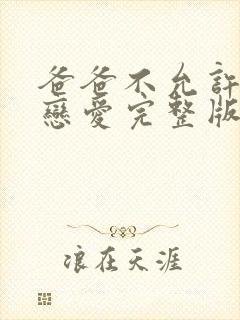 爸爸不允許
戀愛完整版
浪在天涯